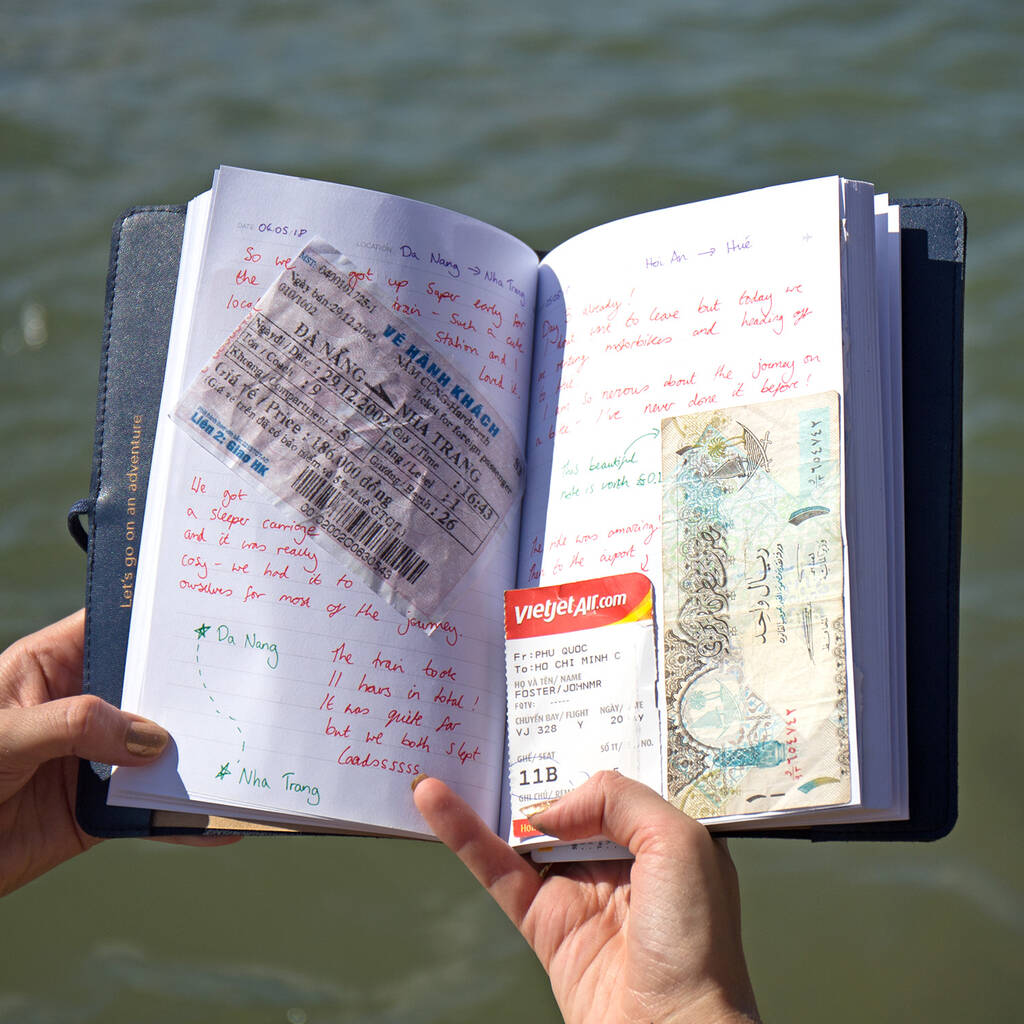 Let's go on an adventure
DATE 04.05.18
LOCATION Da Nang → Nha Trang
So we got up super early for
the train - Such a cute
local station and I
loved it.
VÉ HÀNH KHÁCH
NĂM CÙNG/Hardberth
Ticket for foreign passenger
ĐÀ NẴNG
NHA TRANG
Ngày/ Date : 29.12.2002 Giờ / Time : 16:43
Toa / Coach : 9 Tầng / Level : 1
Khoang/ Compartment : 5 Giường/ Berth : 26
Giá vé / Price : 186,000 đồng
Liên 2: Giao HK
We got
a sleeper carriage
and it was really
cosy - we had it to
ourselves for most of the journey.
Da Nang
Nha Trang
The train took
11 hours in total!
It was quite far
but we both slept
loadssssss
Hoi An → Hué
Day 5 already!
want to leave but today we
motorbikes and heading off
I am so nervous about the journey on
a bike - I've never done it before!
This beautiful
note is worth £0.2
The ride was amazing!
then to the airport
vietjetAir.com
Fr:PHU QUOC
To:HO CHI MINH C
HỌ VÀ TÊN/ NAME
FOSTER/JOHNMR
FQTV: -----
CHUYẾN BAY/ FLIGHT NGÀY/
VJ 328 Y 20
GHẾ/ SEAT
11B
GHI CHÚ/
ريال واحد